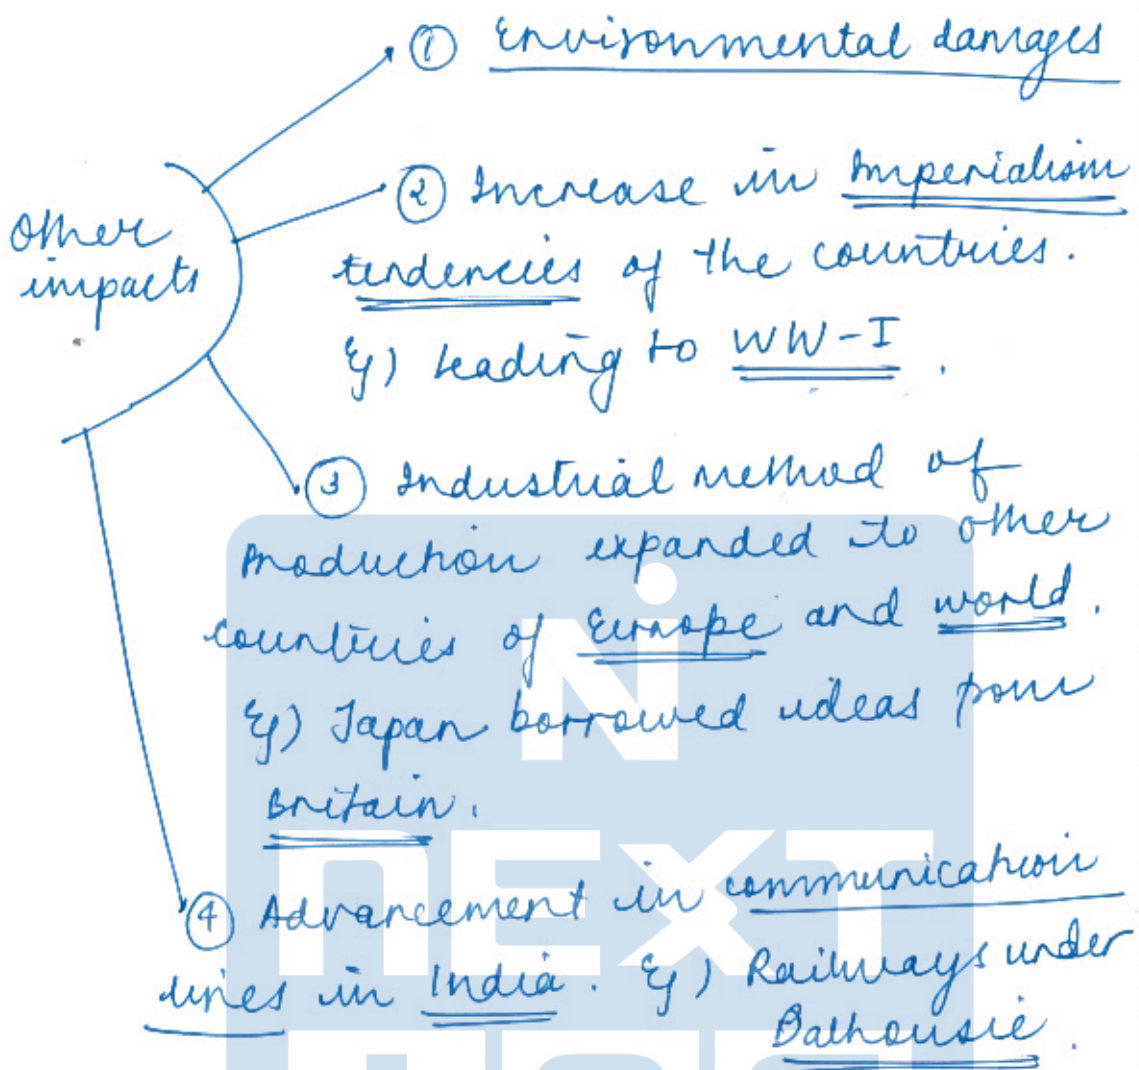 Other
impacts
① Environmental damages
② Increase in Imperialism
tendencies of the countries.
Eg) leading to WW-I.
③ Industrial method of
Production expanded to other
countries of Europe and world.
Eg) Japan borrowed ideas from
Britain.
④ Advancement in communication
lines in India. Eg) Railways under
Dalhousie.
NEXT